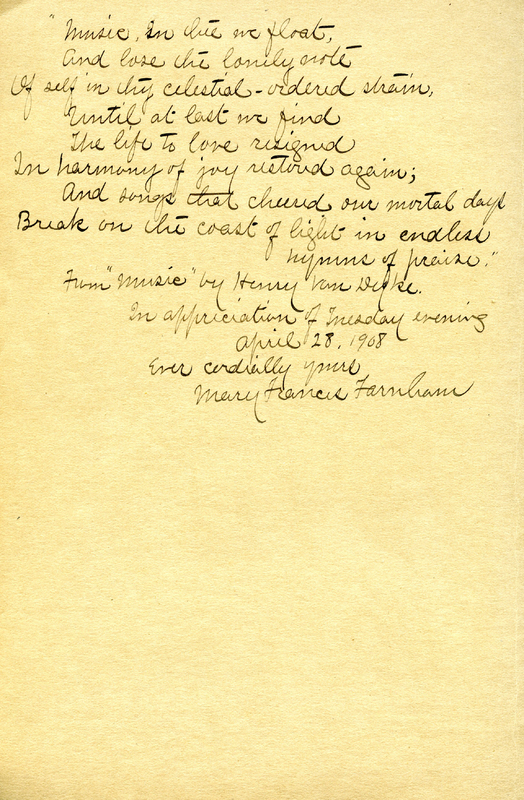 "Music, In thee we float,
And lose the lonely note
Of self in thy celestial-ordered strain,
Until at last we find
The life to love resigned
In harmony of joy restored again;
And songs that cheered our mortal days
Break on the coast of light in endless
hymns of praise."
From "Music" by Henry Van Dyke.
In appreciation of Tuesday evening
April 28, 1908
Ever cordially yours
Mary Frances Farnham